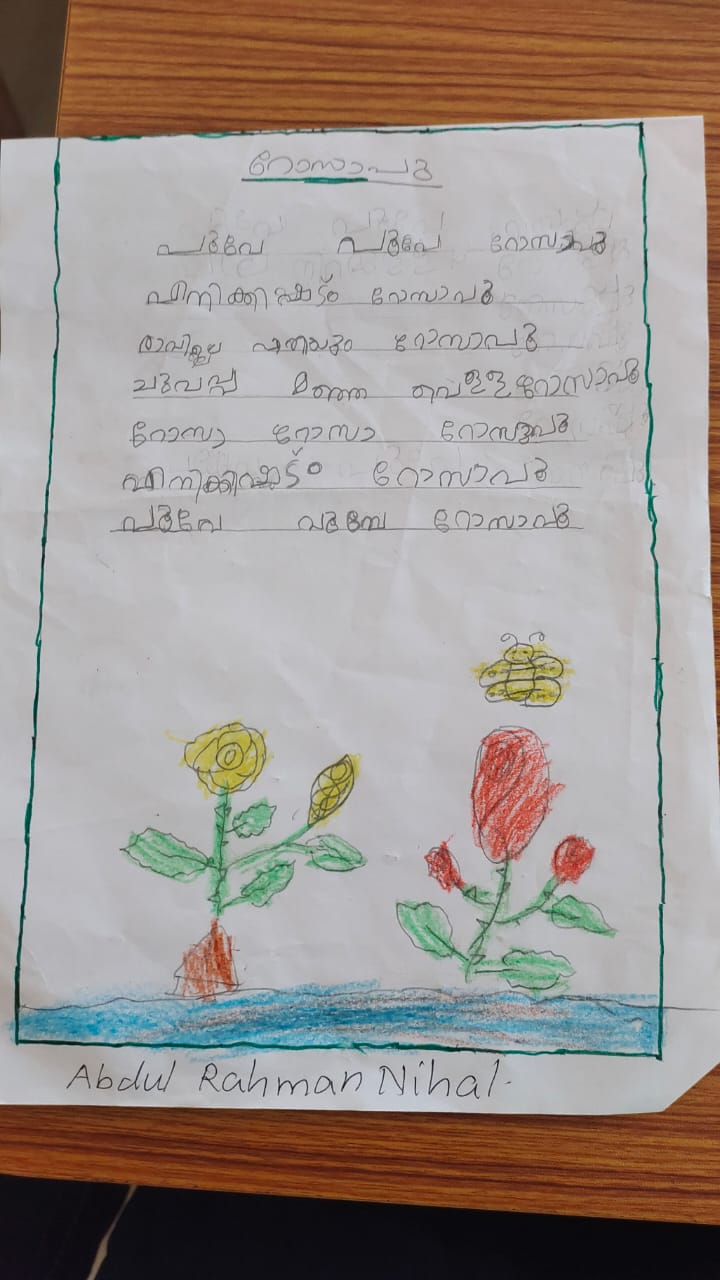 റോസാപൂ
പൂവേ പൂവേ റോസാപൂ
എനിക്കിഷ്ടം റോസാപൂ
റോസാപൂ
ചുവപ്പ് മഞ്ഞ വെള്ള റോസാപൂ
റോസാ റോസാ റോസാപൂ
എനിക്കിഷ്ടം റോസാപൂ
പൂവേ പൂവേ റോസാപൂ
Abdul Rahman Nihal.